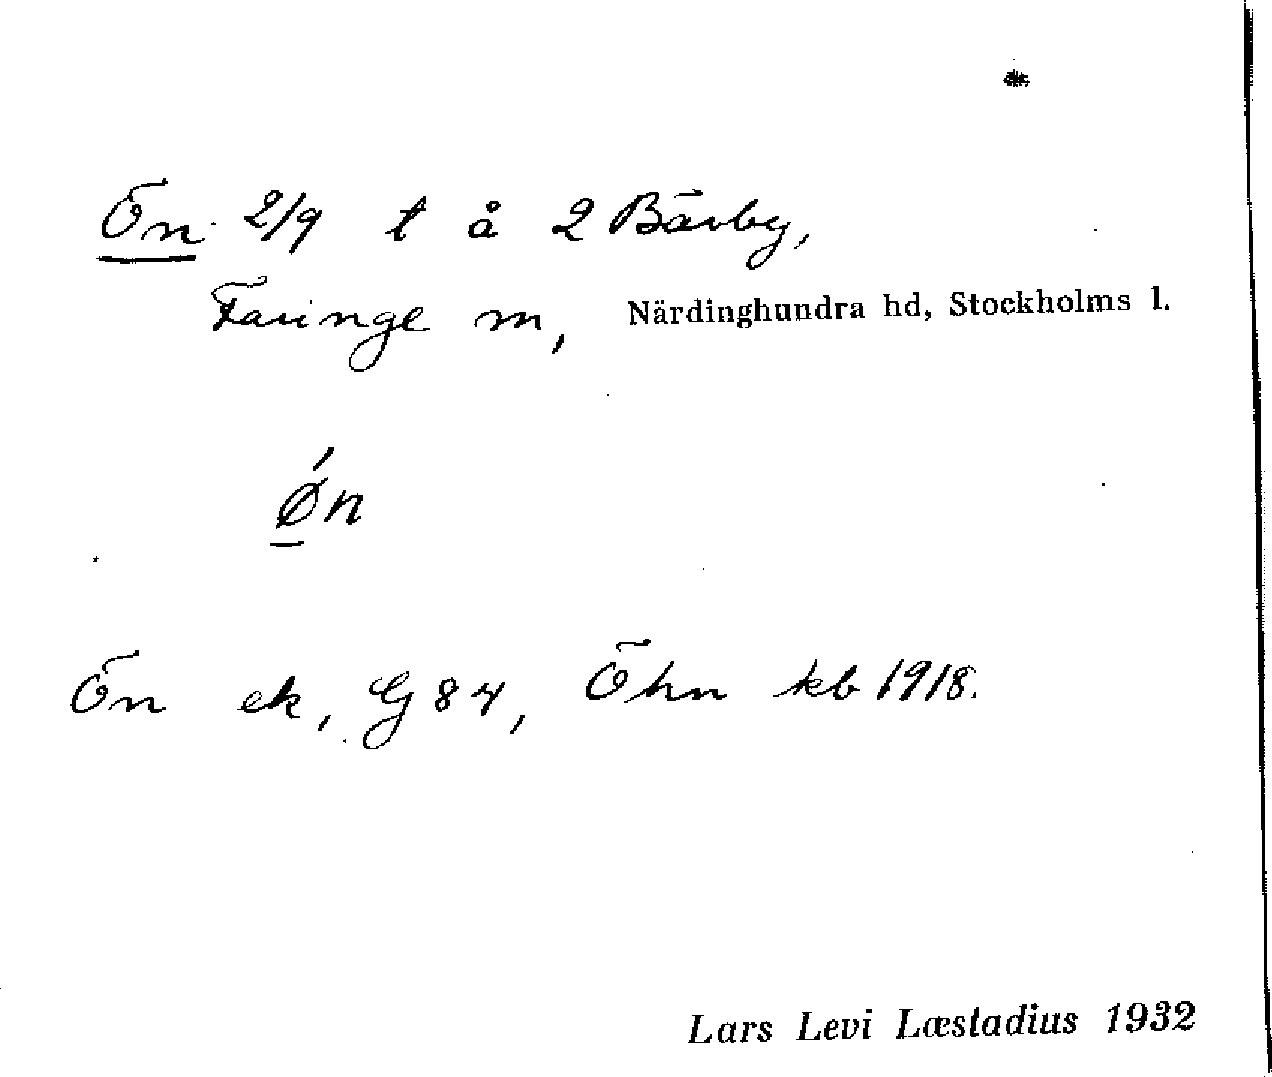 *
Ön 2/9 t å 2 Bärby,
Faringe m, Närdinghundra hd, Stockholms l.
ǿn
Ön ek, G 84, Öhn kb 1918.
Lars Levi Læstadius 1932